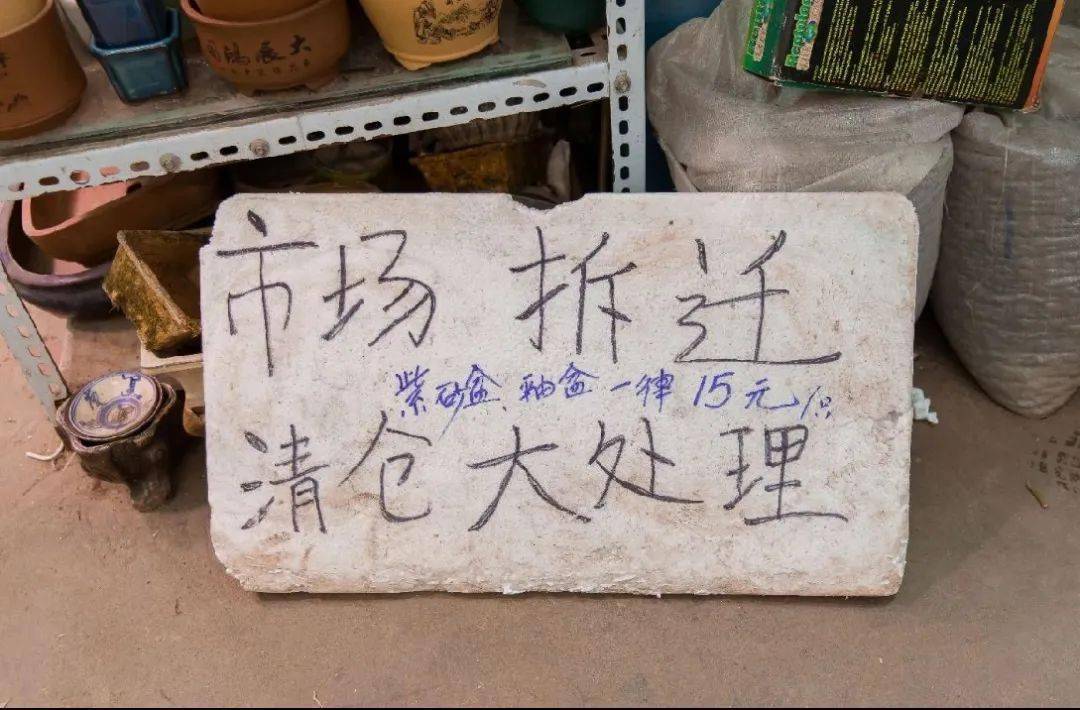 大展鴻
市场 拆迁
紫砂盆、釉盆一律15元/只
清仓大处理